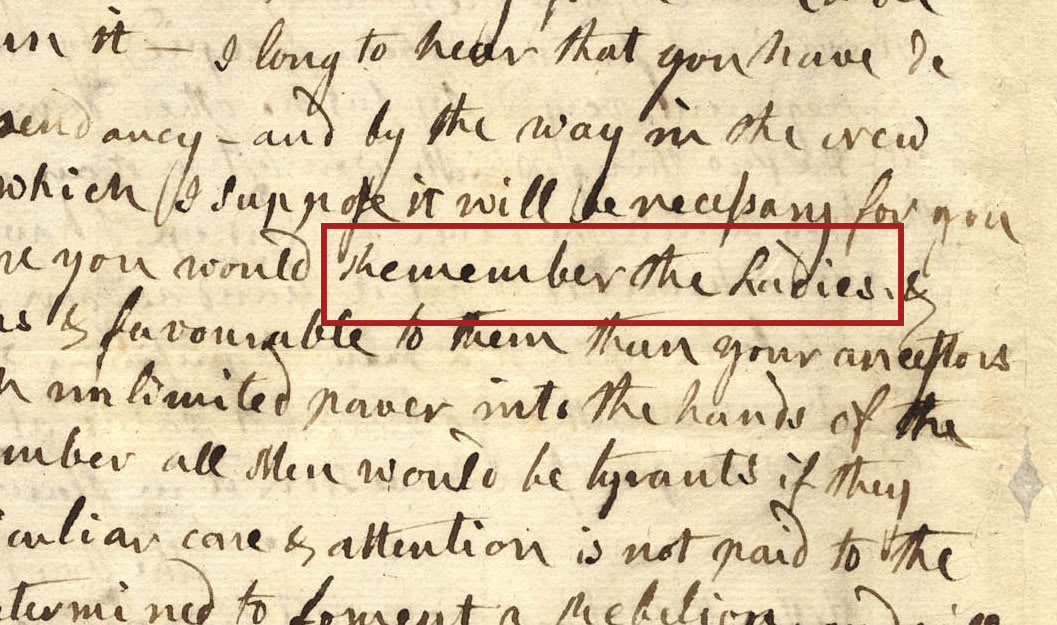 un it — I long to hear that you have de
pendancy — and by the way in the new
which I suppose it will be necessary for you
re you would Remember the Ladies, &
us & favourable to them than your ancestors
h unlimited power into the hands of the
mber all Men would be tyrants if they
culiar care & attention is not paid to the
termined to foment a Rebelion